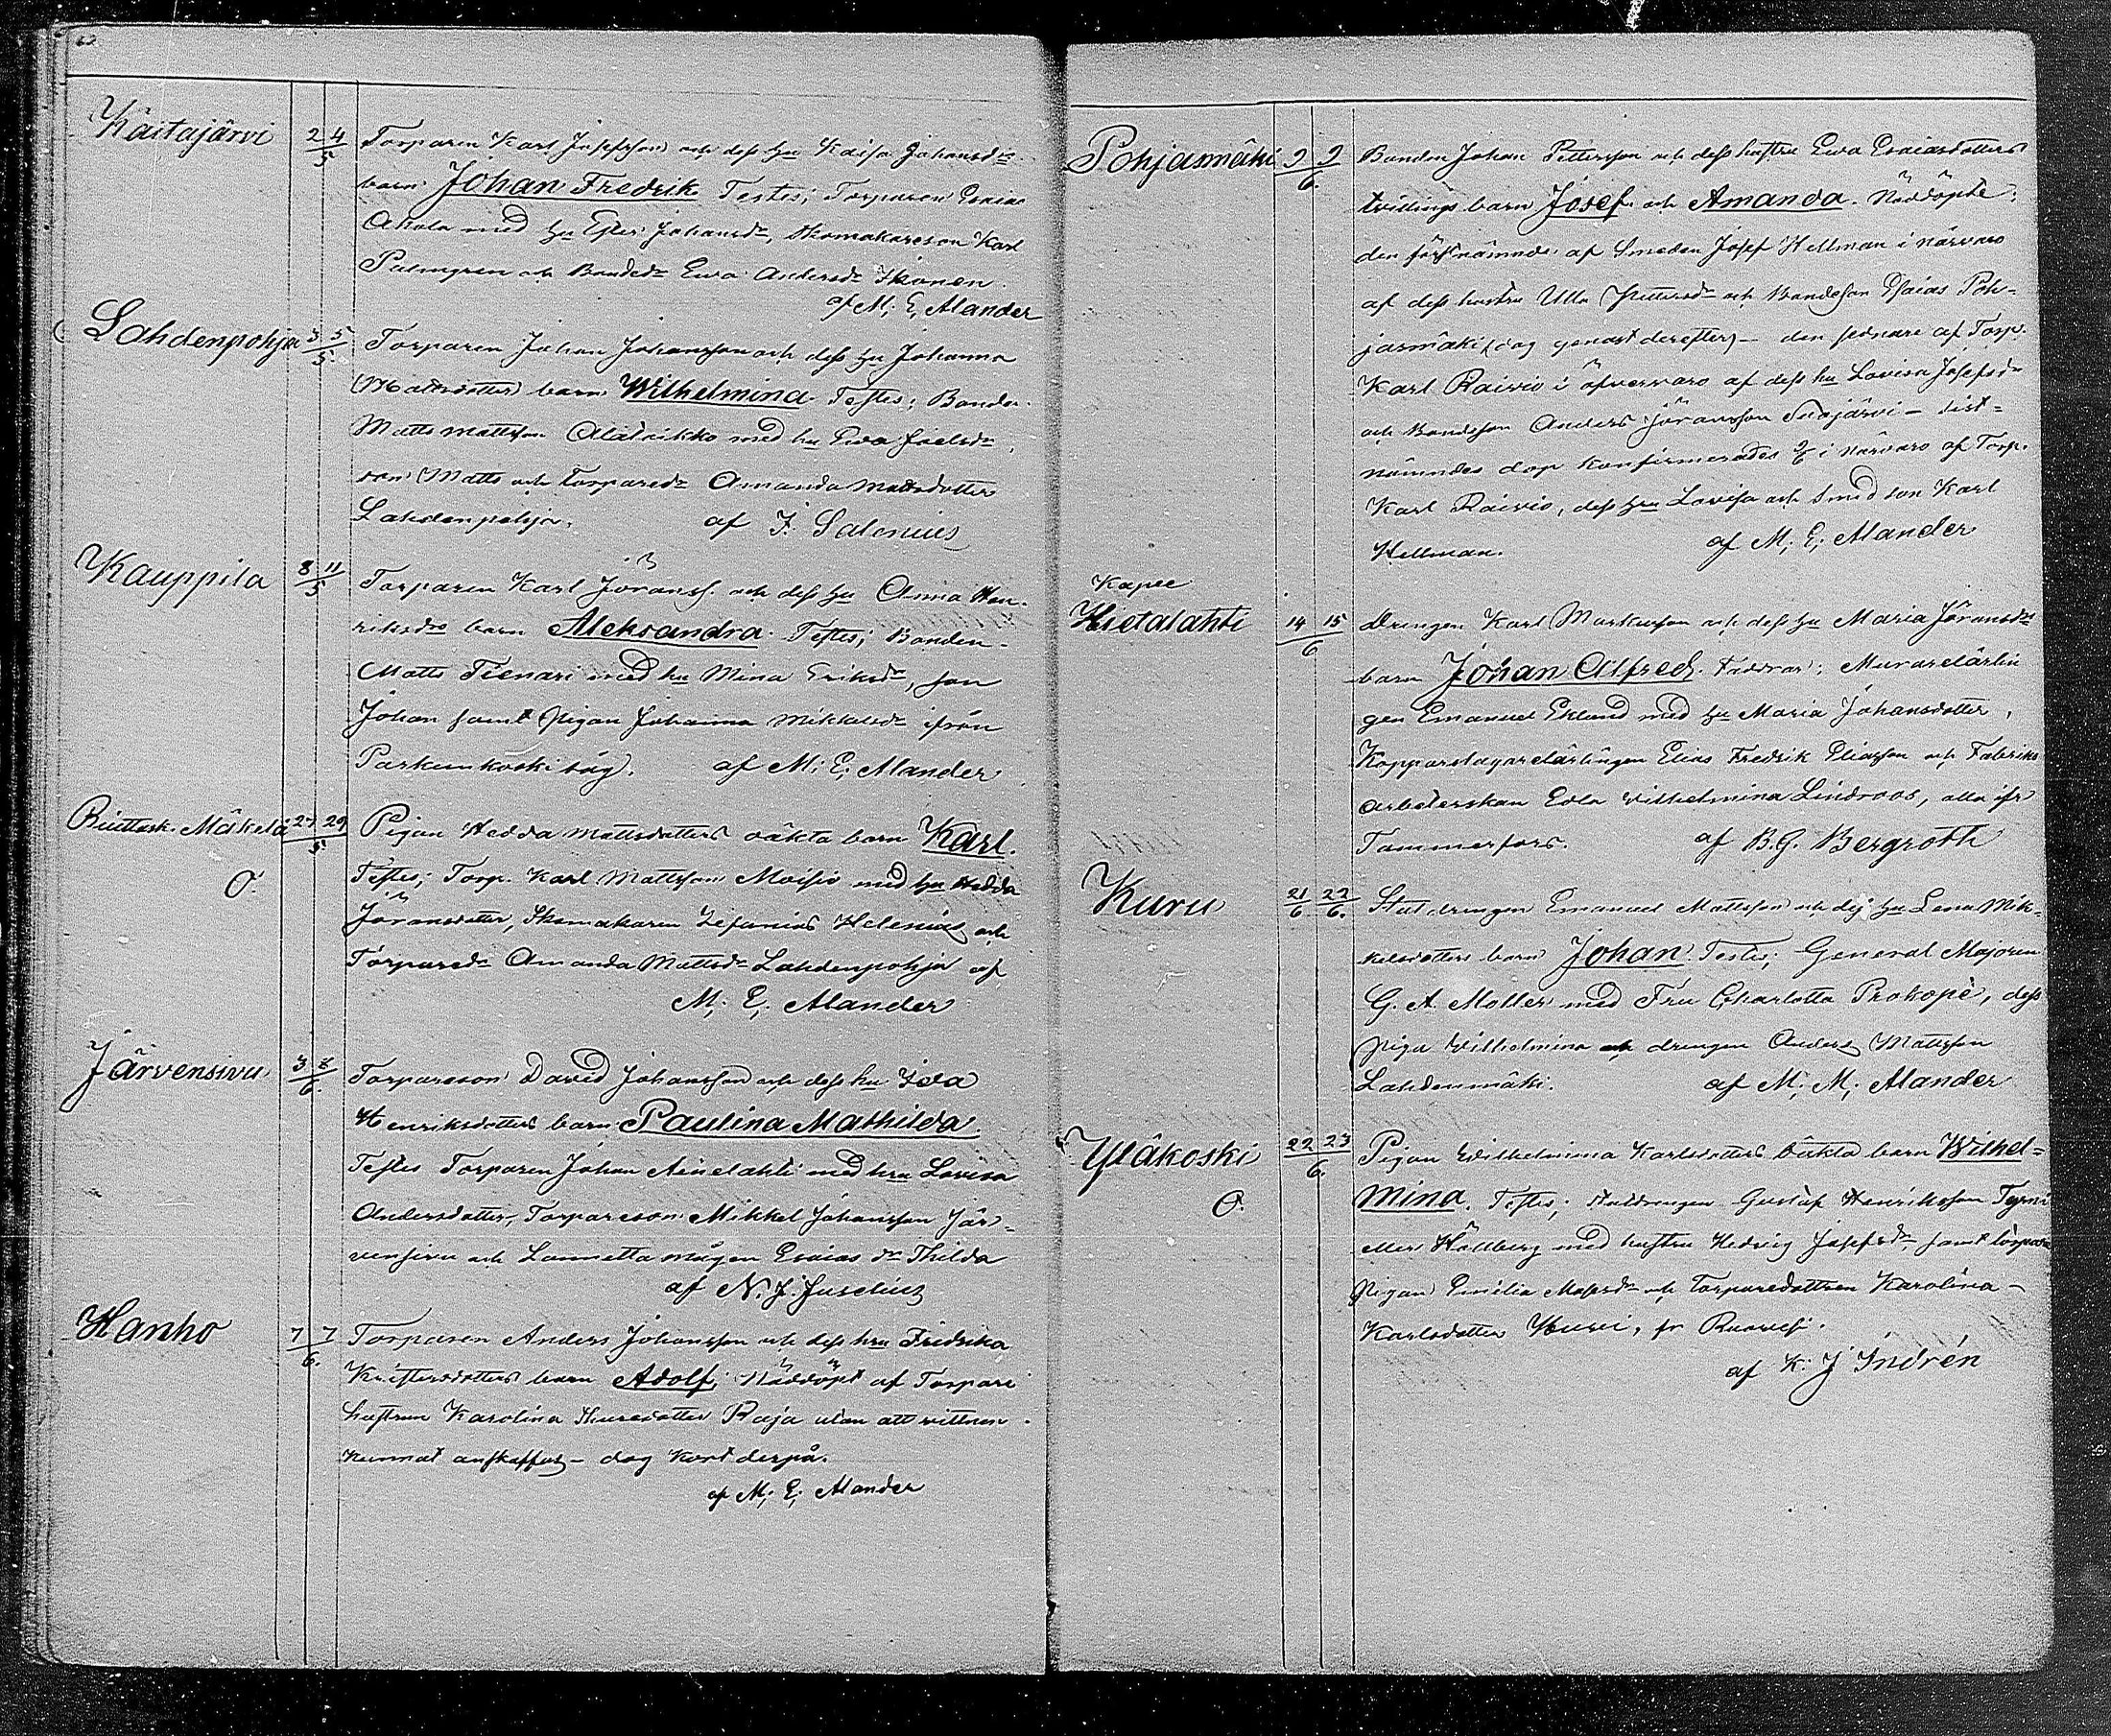 62
Käitajärvi 2 4/5 Torparen Karl Josefsson och dess hu Kaisa Johansdr
barn Johan Fredrik Testes; Torparen Esaias
Ahola med hu Ester Johansdr, skomakareson Karl
Palmgren och Bondedr Eva Andersdr Ikonen.
af M; E; Alander
Lahdenpohja 3 5/5. Torparen Johan Johansson och dess hu Johanna
Mattsdotters barn Wilhelmina Testes; Bonden
Matts Mattsson Alatrikko med hu Eva Joelsdr,
son Matts och Torparedr Amanda Mattsdotter
Lahdenpohja. af F. Salenius
Kauppila 8 11/5 Torparen Karl Jöranss. och dess hu Anna Hen-
riksdrs barn Aleksandra. Testes; Bonden
Matts Tienari med hu Mina Eriksdr, son
Johan samt Pigan Johanna Mikkelsdr ifrån
Parkunkoski såg. af M; E; Alander
Riuttask. Mäkelä 27 29/5 Pigan Hedda Mattsdotters oäkta barn Karl.
O. Testes; Torp. Karl Mattsson Moisio med hu Hedda
Jöransdotter, Skomakaren Zefanias Helenius och
Torparedr Amanda Mattsdr Lahdenpohja af
M; E; Alander
Järvensivu 3 8/6. Torpareson David Johansson och dess hu Ida
Henriksdotters barn Paulina Mathilda.
Testes Torparen Johan Ainelahti med hru Lovisa
Andersdotter, Torpareson Mikkel Johansson Jär-
vensivu och Lammettamägen Esaias dr Thilda
af N. J. Juselius
Hanho 7 7/6. Torparen Anders Johansson och dess hru Fredrika
Kristersdotters barn Adolf; Nöddöpt af Torpare
hustrun Karolina Thuresdotter Raja utan att vittnen
kunnat anskaffas – dog kort derpå.
af M; E; Alander
Pohjasmäki 9 9/6. Bonden Johan Pettersson och dess hustru Eva Esaiasdotters
tvillings barn Josef och Amanda. Nöddöpte;
den förstnämnde af Smeden Josef Hellman i närvaro
af dess hustru Ulla Pettersdr och Bondeson Esaias Poh-
jasmäki (dog genast derefter) – den sednare af Torp.
Karl Raivio i öfvervaro af dess hu Lovisa Josefsdr
och Bondeson Anders Jöransson Suojärvi – sist-
nämndes dop konfirmerades 9/6 i närvaro af Torp.
Karl Raivio, dess hru Lovisa och Smedson Karl
Hellman. af M; E; Alander
Kapee
Hietalahti 14 15/6 Drengen Karl Markusson och dess hu Maria Jöransdrs
barn Johan Alfred. Faddrar; Murarelärlin
gen Emanuel Eklund med hu Maria Johansdotter,
Kopparslagarelärlingen Elias Fredrik Eliasson och Fabriks
arbeterskan Eola Wilhelmina Lindroos, alla ifr
Tammerfors. af B. G. Bergroth
Kuru 21/6 22/6. Statdrengen Emanuel Mattsson och dess hu Lena Mik-
kelsdotters barn Johan. Testes; General Majoren
G. A. Moller med Fru Charlotta Prokopè, dess
piga Wilhelmina och drengen Anders Mattsson
Lahdenmäki. af M; M; Alander
Yläkoski 22 23/6. Pigan Wilhelmina Karlsdotters oäkta barn Wilhel-
O. mina. Testes; Statdrengen Gustaf Henriksson Tyrni
eller Hållberg med hustru Hedvig Josefsdr, samt torpare
Pigan Emilia Matsdr och Torparedottren Karolina
Karlsdotter fr Ruovesi.
af K: J Indrén